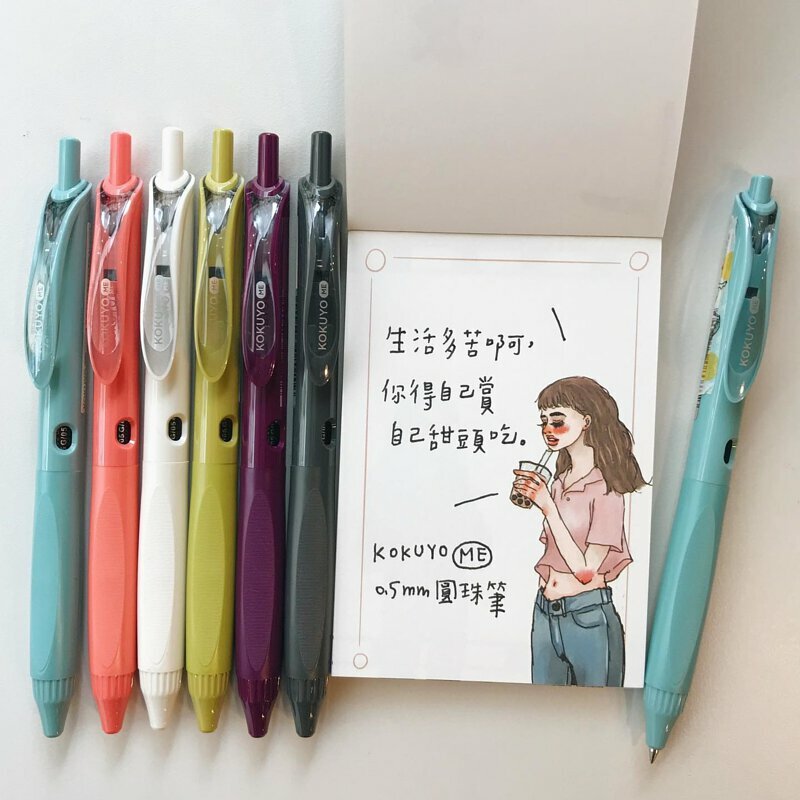 KOKUYO ME
KOKUYO ME
KOKUYO ME
KOKUYO ME
KOKUYO ME
G/05
生活多苦啊,
你得自己賞
自己甜頭吃。
KOKUYO ME
0.5mm 圓珠筆
KOKUYO ME